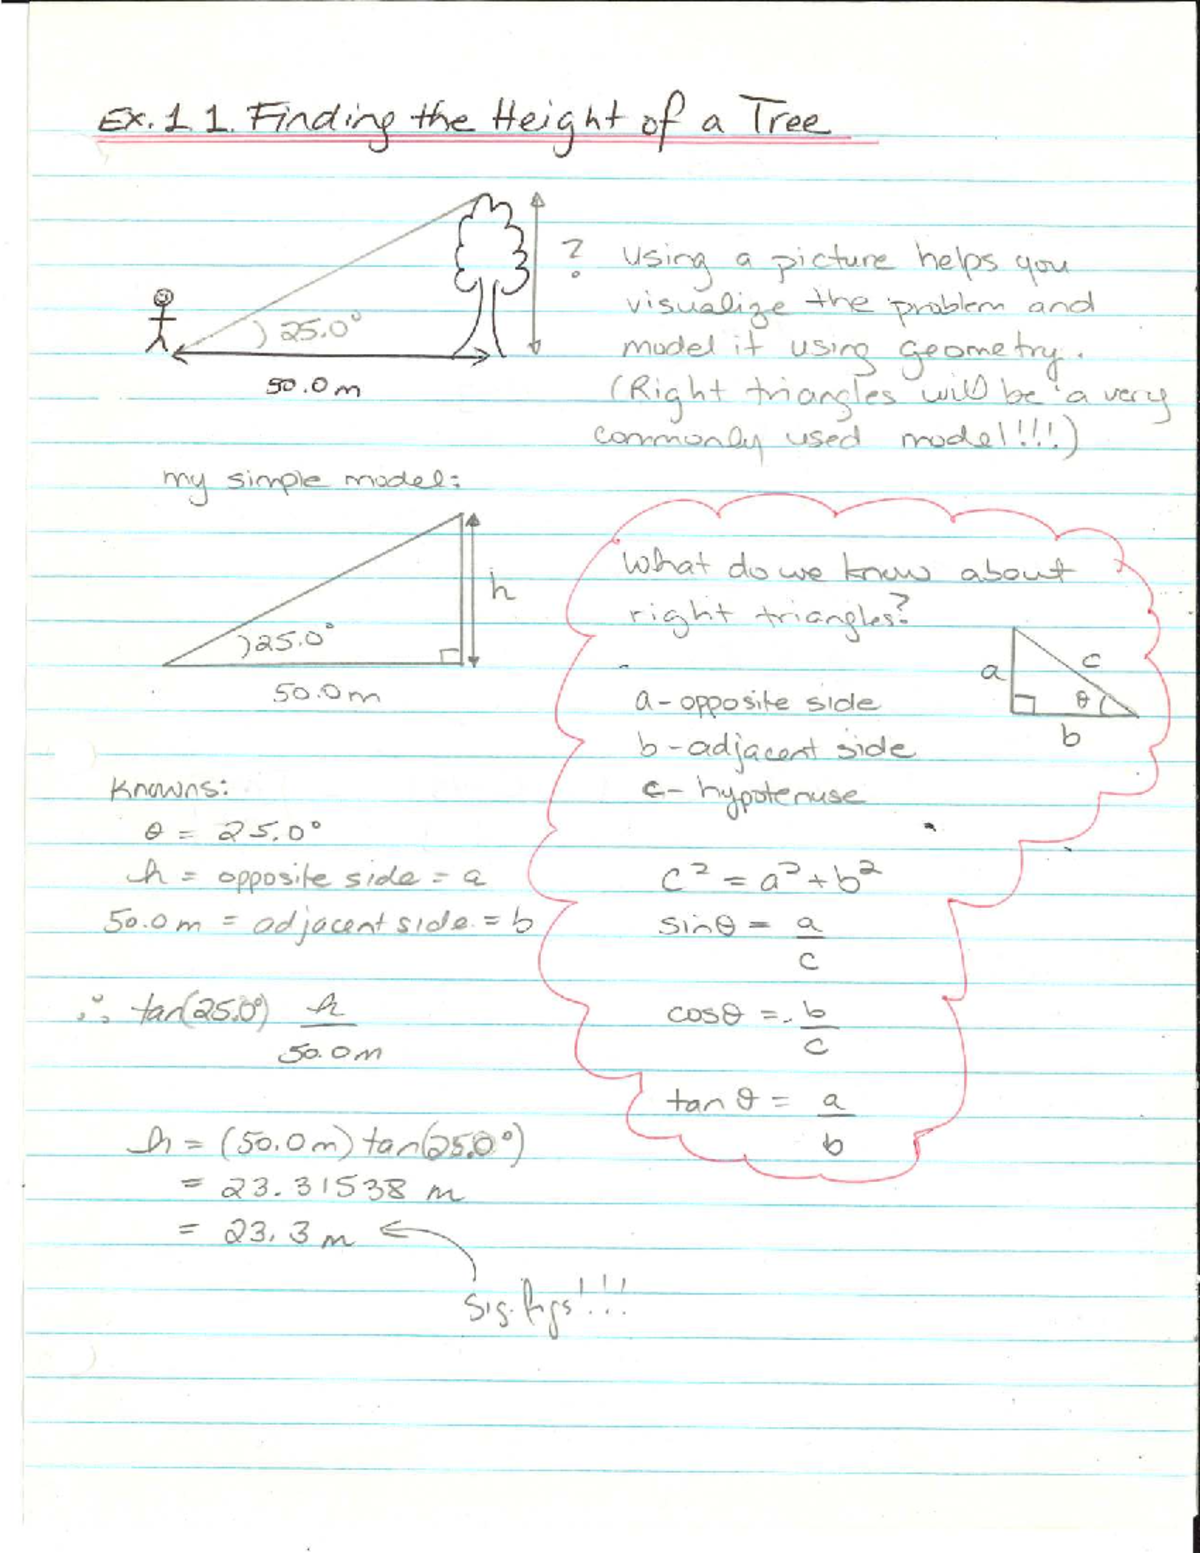 Ex. 1.1. Finding the Height of a Tree
?
25.0°
50.0m
Using a picture helps you
visualize the problem and
model it using geometry.
(Right triangles will be a very
commonly used model!!!)
my simple model:
h
25.0°
50.0m
What do we know about
right triangles?
a
c
θ
b
a - opposite side
b - adjacent side
c - hypotenuse
c² = a² + b²
sinθ = a/c
cosθ = b/c
tan θ = a/b
Knowns:
θ = 25.0°
h = opposite side = a
50.0m = adjacent side = b
∴ tan(25.0°) h/50.0m
h = (50.0m) tan(25.0°)
= 23.31538 m
= 23.3 m
Sig. figs!!!